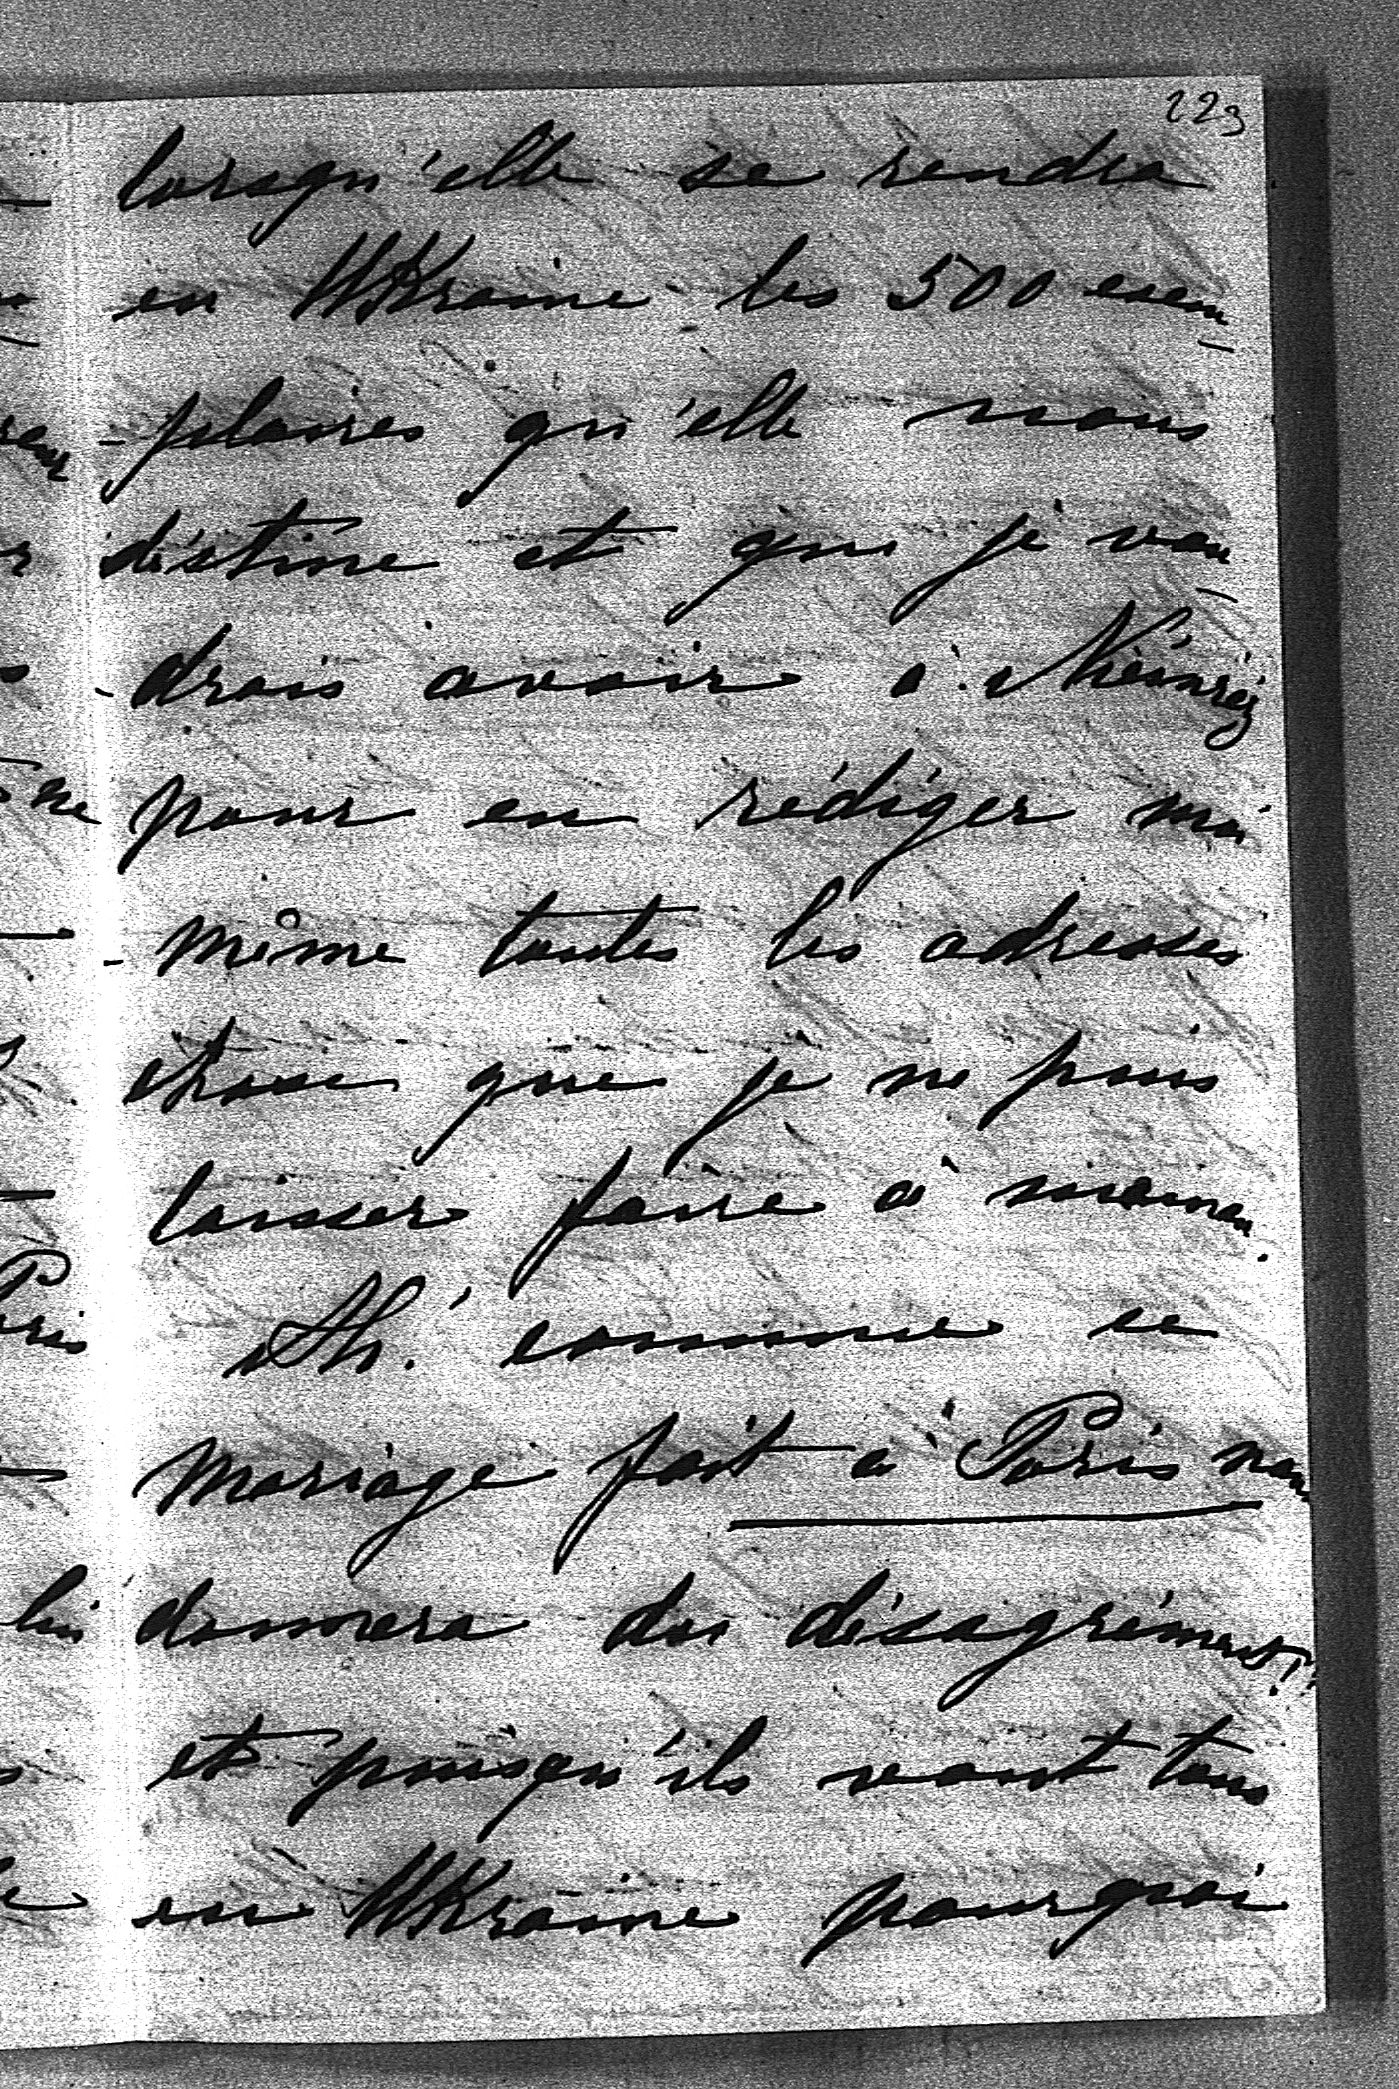 223
lorsqu'elle se rendra
en Ukraine les 500 exem
-plaires qu'elle nous
déstine et que je vou
-drais avoir à
pour en rédiger moi
-même toutes les adresses
chose que je ne puis
laisser faire à maman.
Ah! comme ce
mariage fait à Paris nous
donnera des désagréments!!
et puisqu'ils vont tous
en Ukraine pourquoi